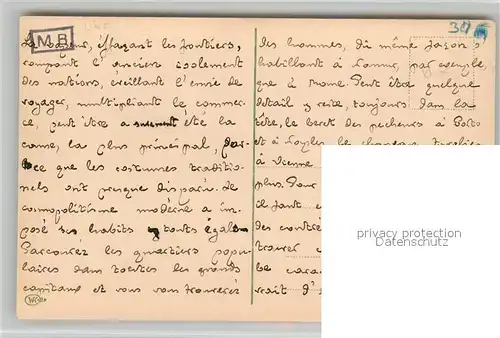 M.B.
La vapeur, effaçant les frontières,
rompant l'ancien isolement
des nations, éveillant l'envie de
voyager, multipliant le commer-
ce, peut être a été la
cause, la plus principal, par-
ce que les costumes traditio-
nels ont presque disparu. Le
cosmopolitisme modèrne a im-
posé ses habits toutes égales
Parcourez les quartiers popu-
laires dans toutes les grands
capitaux et vous vous trouverez
des hommes, du même façon s'
habillant à par exemple,
que à Rome. Peut être quelque
détail y reste, toujours dans la
tête, le beret des pecheurs à Porto
et à Naples le chapeau
à Vienne
plus. Pour
il faut
des contré
trouver
le cara
rait d'
privacy protection
Datenschutz